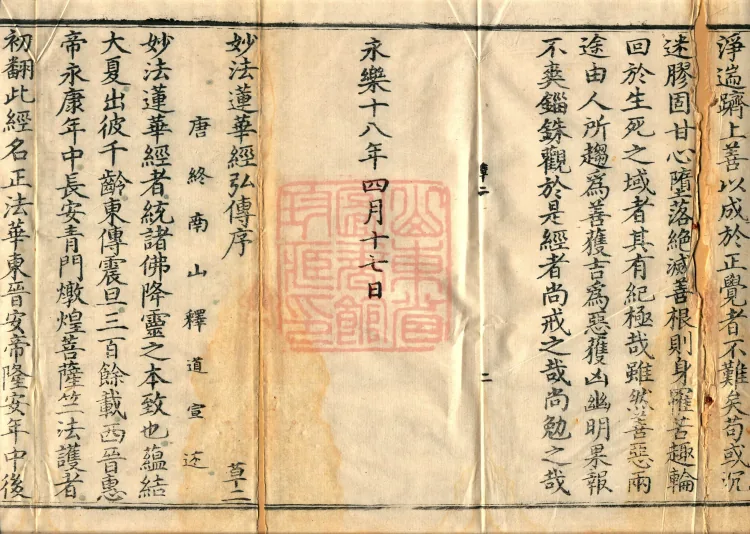 淨遄躋上善以成於正覺者不難矣苟或沉
迷膠固甘心墮落絕滅善根則身罹苦趣輪
回於生死之域者其有紀極哉雖然善惡兩
途由人所趨為善獲吉為惡獲凶幽明果報
不爽錙銖觀於是經者尚戒之哉尚勉之哉
二
永樂十八年四月十七日
山東省圖書館珍藏印
妙法蓮華經弘傳序
草二
唐終南山釋道宣述
妙法蓮華經者統諸佛降靈之本致也蘊結
大夏出彼千齡東傳震旦三百餘載西晉惠
帝永康年中長安青門燉煌菩薩竺法護者
初翻此經名正法華東晉安帝隆安年中後